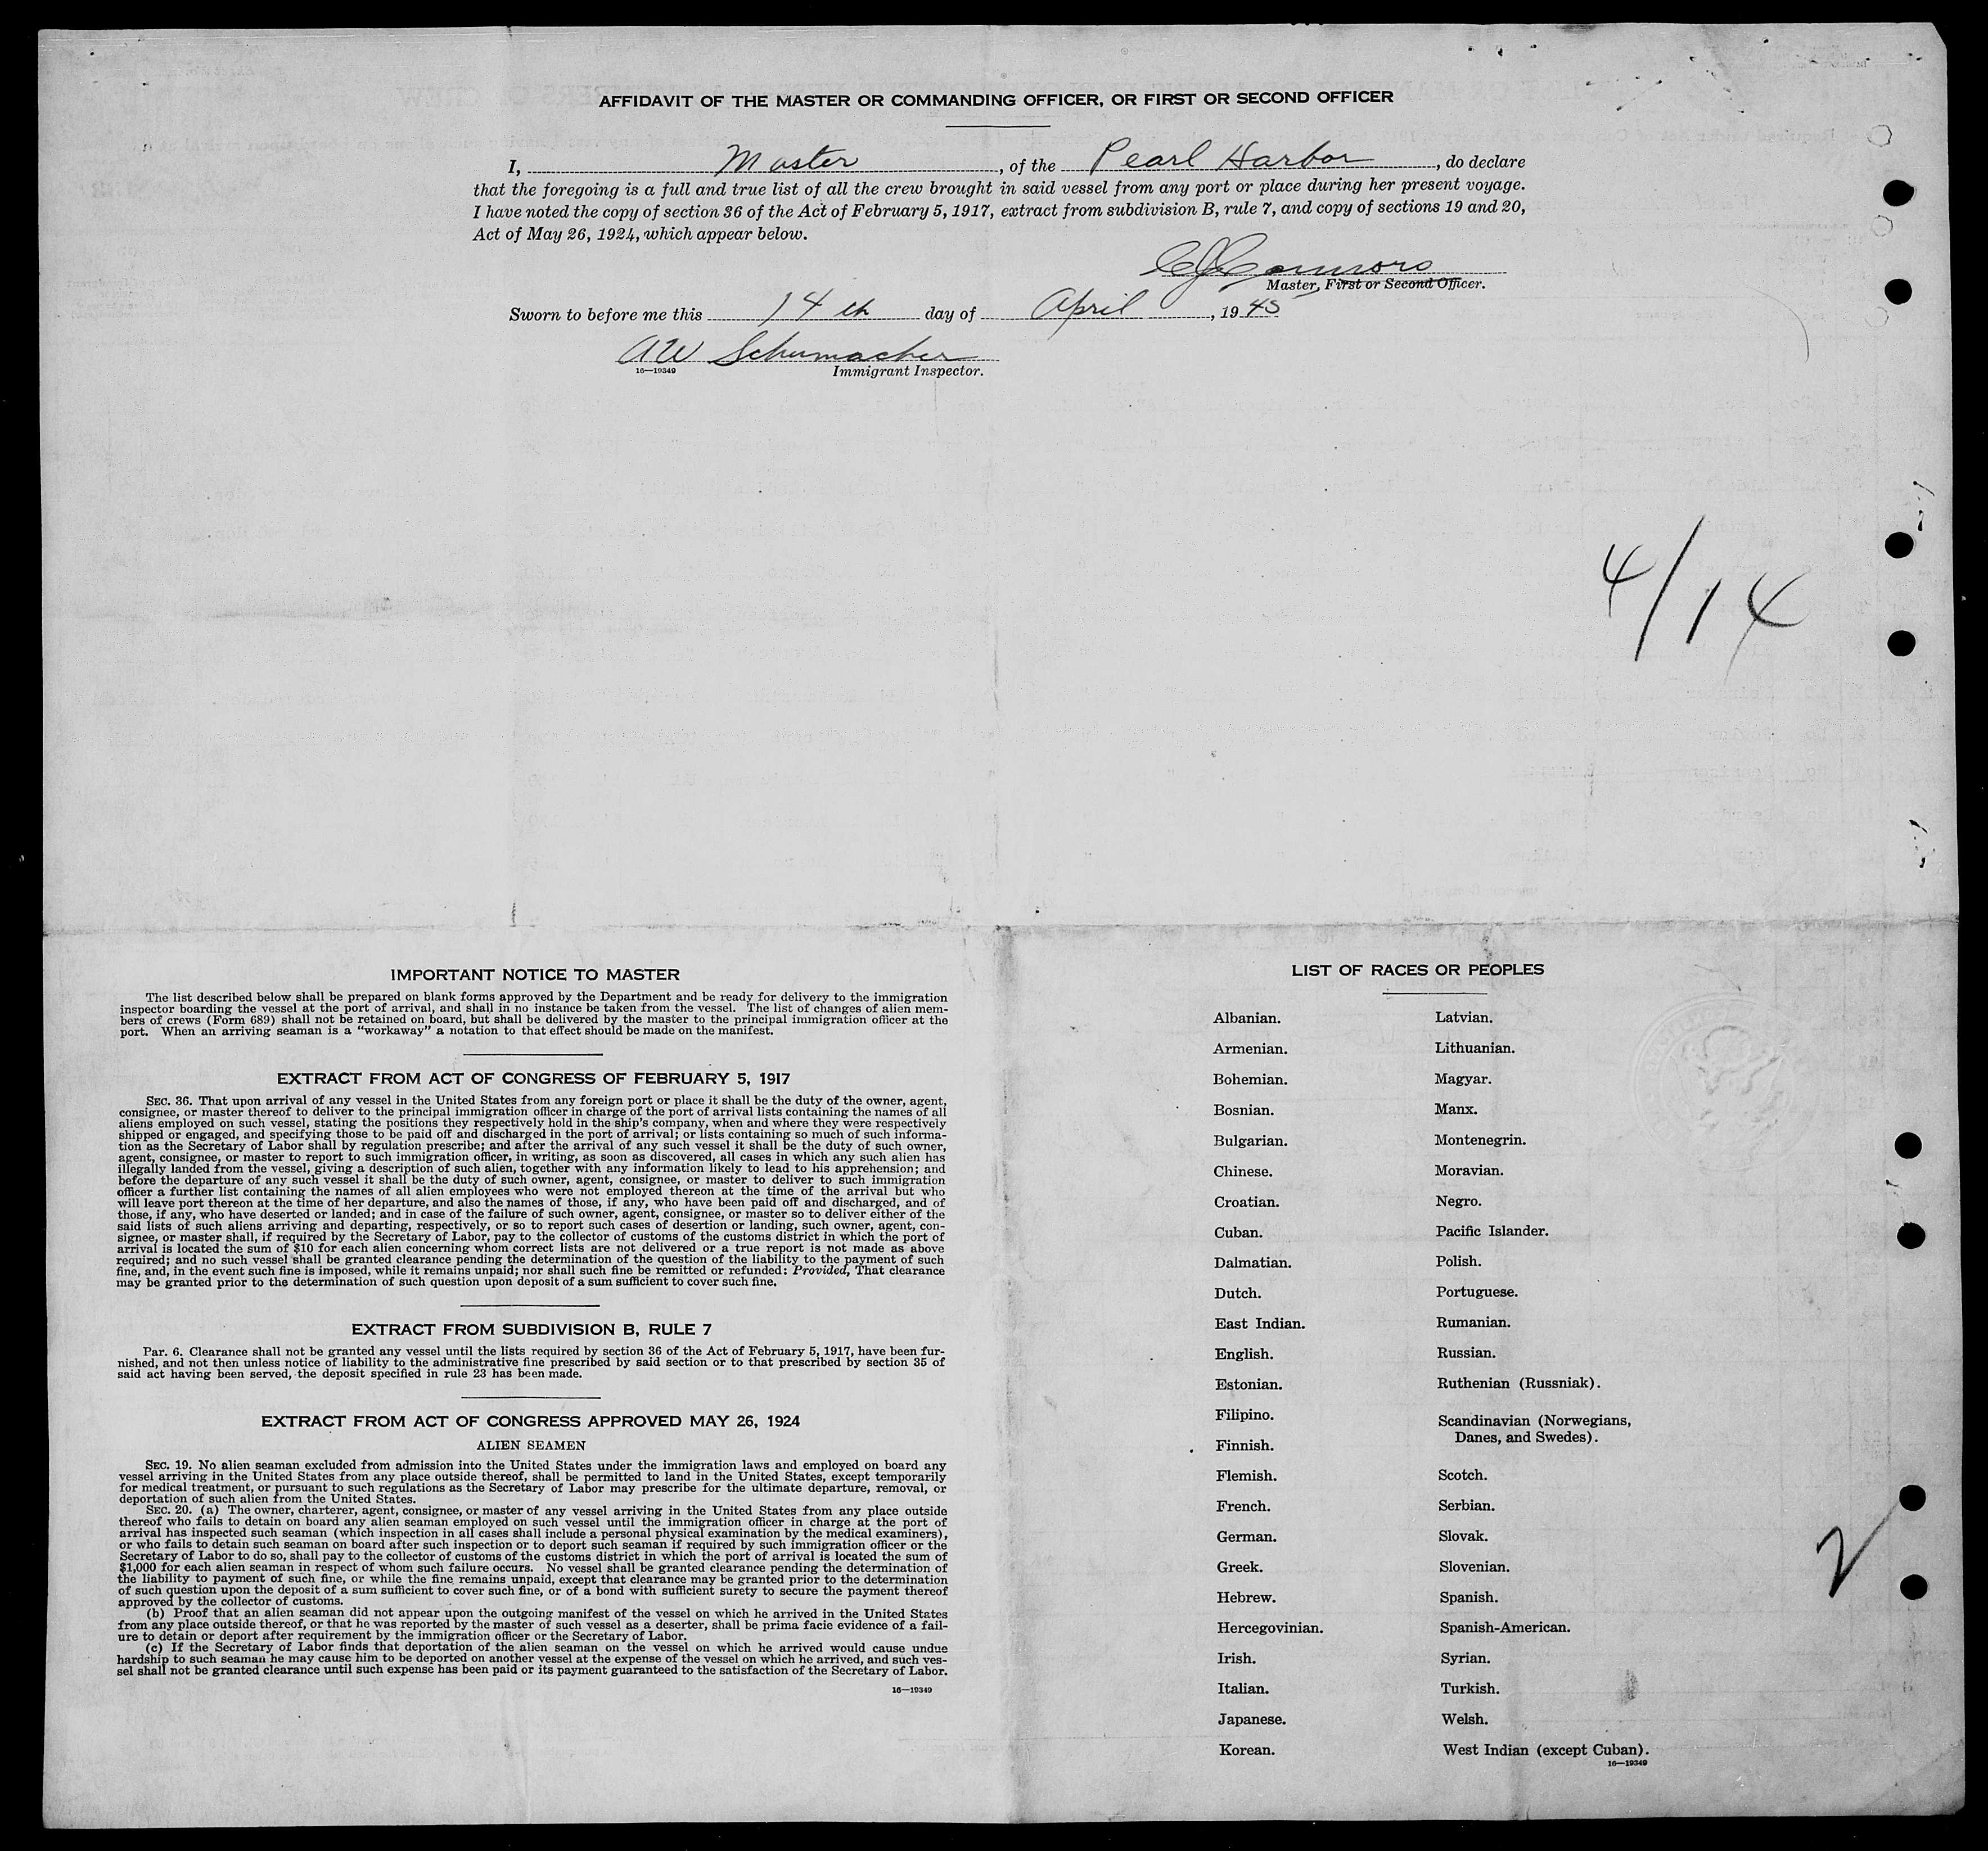 AFFIDAVIT OF THE MASTER OR COMMANDING OFFICER, OR FIRST OR SECOND OFFICER
I, Master, of the Pearl Harbor, do declare
that the foregoing is a full and true list of all the crew brought in said vessel from any port or place during her present voyage.
I have noted the copy of section 36 of the Act of February 5, 1917, extract from subdivision B, rule 7, and copy of sections 19 and 20,
Act of May 26, 1924, which appear below.
Master, First or Second Officer.
Sworn to before me this 14th day of April, 1945
AW Schumacher
16—19349 Immigrant Inspector.
4/14
IMPORTANT NOTICE TO MASTER
The list described below shall be prepared on blank forms approved by the Department and be ready for delivery to the immigration
inspector boarding the vessel at the port of arrival, and shall in no instance be taken from the vessel. The list of changes of alien mem-
bers of crews (Form 689) shall not be retained on board, but shall be delivered by the master to the principal immigration officer at the
port. When an arriving seaman is a “workaway” a notation to that effect should be made on the manifest.
EXTRACT FROM ACT OF CONGRESS OF FEBRUARY 5, 1917
SEC. 36. That upon arrival of any vessel in the United States from any foreign port or place it shall be the duty of the owner, agent,
consignee, or master thereof to deliver to the principal immigration officer in charge of the port of arrival lists containing the names of all
aliens employed on such vessel, stating the positions they respectively hold in the ship’s company, when and where they were respectively
shipped or engaged, and specifying those to be paid off and discharged in the port of arrival; or lists containing so much of such informa-
tion as the Secretary of Labor shall by regulation prescribe; and after the arrival of any such vessel it shall be the duty of such owner,
agent, consignee, or master to report to such immigration officer, in writing, as soon as discovered, all cases in which any such alien has
illegally landed from the vessel, giving a description of such alien, together with any information likely to lead to his apprehension; and
before the departure of any such vessel it shall be the duty of such owner, agent, consignee, or master to deliver to such immigration
officer a further list containing the names of all alien employees who were not employed thereon at the time of the arrival but who
will leave port thereon at the time of her departure, and also the names of those, if any, who have been paid off and discharged, and of
those, if any, who have deserted or landed; and in case of the failure of such owner, agent, consignee, or master so to deliver either of the
said lists of such aliens arriving and departing, respectively, or so to report such cases of desertion or landing, such owner, agent, con-
signee, or master shall, if required by the Secretary of Labor, pay to the collector of customs of the customs district in which the port of
arrival is located the sum of $10 for each alien concerning whom correct lists are not delivered or a true report is not made as above
required; and no such vessel shall be granted clearance pending the determination of the question of the liability to the payment of such
fine, and, in the event such fine is imposed, while it remains unpaid; nor shall such fine be remitted or refunded: Provided, That clearance
may be granted prior to the determination of such question upon deposit of a sum sufficient to cover such fine.
EXTRACT FROM SUBDIVISION B, RULE 7
Par. 6. Clearance shall not be granted any vessel until the lists required by section 36 of the Act of February 5, 1917, have been fur-
nished, and not then unless notice of liability to the administrative fine prescribed by said section or to that prescribed by section 35 of
said act having been served, the deposit specified in rule 23 has been made.
EXTRACT FROM ACT OF CONGRESS APPROVED MAY 26, 1924
ALIEN SEAMEN
SEC. 19. No alien seaman excluded from admission into the United States under the immigration laws and employed on board any
vessel arriving in the United States from any place outside thereof, shall be permitted to land in the United States, except temporarily
for medical treatment, or pursuant to such regulations as the Secretary of Labor may prescribe for the ultimate departure, removal, or
deportation of such alien from the United States.
SEC. 20. (a) The owner, charterer, agent, consignee, or master of any vessel arriving in the United States from any place outside
thereof who fails to detain on board any alien seaman employed on such vessel until the immigration officer in charge at the port of
arrival has inspected such seaman (which inspection in all cases shall include a personal physical examination by the medical examiners),
or who fails to detain such seaman on board after such inspection or to deport such seaman if required by such immigration officer or the
Secretary of Labor to do so, shall pay to the collector of customs of the customs district in which the port of arrival is located the sum of
$1,000 for each alien seaman in respect of whom such failure occurs. No vessel shall be granted clearance pending the determination of
the liability to payment of such fine, or while the fine remains unpaid, except that clearance may be granted prior to the determination
of such question upon the deposit of a sum sufficient to cover such fine, or of a bond with sufficient surety to secure the payment thereof
approved by the collector of customs.
(b) Proof that an alien seaman did not appear upon the outgoing manifest of the vessel on which he arrived in the United States
from any place outside thereof, or that he was reported by the master of such vessel as a deserter, shall be prima facie evidence of a fail-
ure to detain or deport after requirement by the immigration officer or the Secretary of Labor.
(c) If the Secretary of Labor finds that deportation of the alien seaman on the vessel on which he arrived would cause undue
hardship to such seaman he may cause him to be deported on another vessel at the expense of the vessel on which he arrived, and such ves-
sel shall not be granted clearance until such expense has been paid or its payment guaranteed to the satisfaction of the Secretary of Labor.
16—19349
LIST OF RACES OR PEOPLES
Albanian.
Armenian.
Bohemian.
Bosnian.
Bulgarian.
Chinese.
Croatian.
Cuban.
Dalmatian.
Dutch.
East Indian.
English.
Estonian.
Filipino.
Finnish.
Flemish.
French.
German.
Greek.
Hebrew.
Hercegovinian.
Irish.
Italian.
Japanese.
Korean.
Latvian.
Lithuanian.
Magyar.
Manx.
Montenegrin.
Moravian.
Negro.
Pacific Islander.
Polish.
Portuguese.
Rumanian.
Russian.
Ruthenian (Russniak).
Scandinavian (Norwegians,
Danes, and Swedes).
Scotch.
Serbian.
Slovak.
Slovenian.
Spanish.
Spanish-American.
Syrian.
Turkish.
Welsh.
West Indian (except Cuban).
16—19349
2